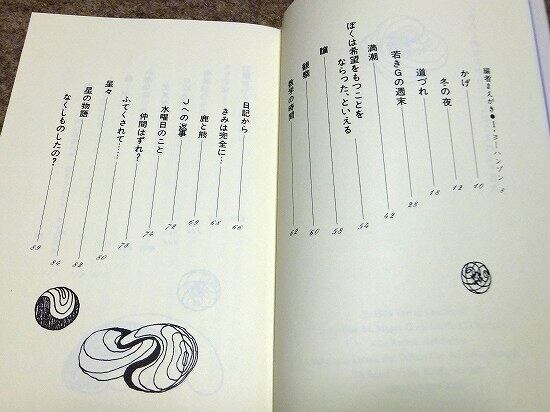 編者まえがき●I・ヨーハンソン 8
かげ 10
冬の夜 12
道づれ 18
若きGの週末 28
満潮 42
ぼくは希望をもつことを
ならった、といえる 54
瞳 58
観察 60
数学の時間 62
日記から 66
きみは完全に… 68
鹿と熊 69
Jへの返事 72
水曜日のこと 74
仲間はずれ? 78
ふてくされて…… 80
星々 82
星の物語 84
なくしものしたの? 89